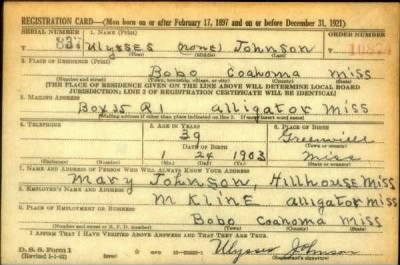 REGISTRATION CARD—(Men born on or after February 17, 1897 and on or before December 31, 1921)
SERIAL NUMBER 1. NAME (Print) ORDER NUMBER
U 837 Ulysses (none) Johnson
(First) (Middle) (Last)
2. PLACE OF RESIDENCE (Print)
Bobo Coahoma Miss
(Number and street) (Town, township, village, or city) (County) (State)
[THE PLACE OF RESIDENCE GIVEN ON THE LINE ABOVE WILL DETERMINE LOCAL BOARD
JURISDICTION; LINE 2 OF REGISTRATION CERTIFICATE WILL BE IDENTICAL]
3. MAILING ADDRESS
Box 35 R1 Alligator Miss
[Mailing address if other than place indicated on line 2. If same insert word same]
4. TELEPHONE 5. AGE IN YEARS 6. PLACE OF BIRTH
39 Greenville
DATE OF BIRTH (Town or county)
1 24 1903 Miss
(Exchange) (Number) (Mo.) (Day) (Yr.) (State or country)
7. NAME AND ADDRESS OF PERSON WHO WILL ALWAYS KNOW YOUR ADDRESS
Mary Johnson, Hillhouse Miss
8. EMPLOYER'S NAME AND ADDRESS
M Kline Alligator Miss
9. PLACE OF EMPLOYMENT OR BUSINESS
Bobo Coahoma Miss
(Number and street or R. F. D. number) (Town) (County) (State)
I AFFIRM THAT I HAVE VERIFIED ABOVE ANSWERS AND THAT THEY ARE TRUE.
D. S. S. Form 1
(Revised 1-1-42) (over) Ulysses Johnson
(Registrant's signature)